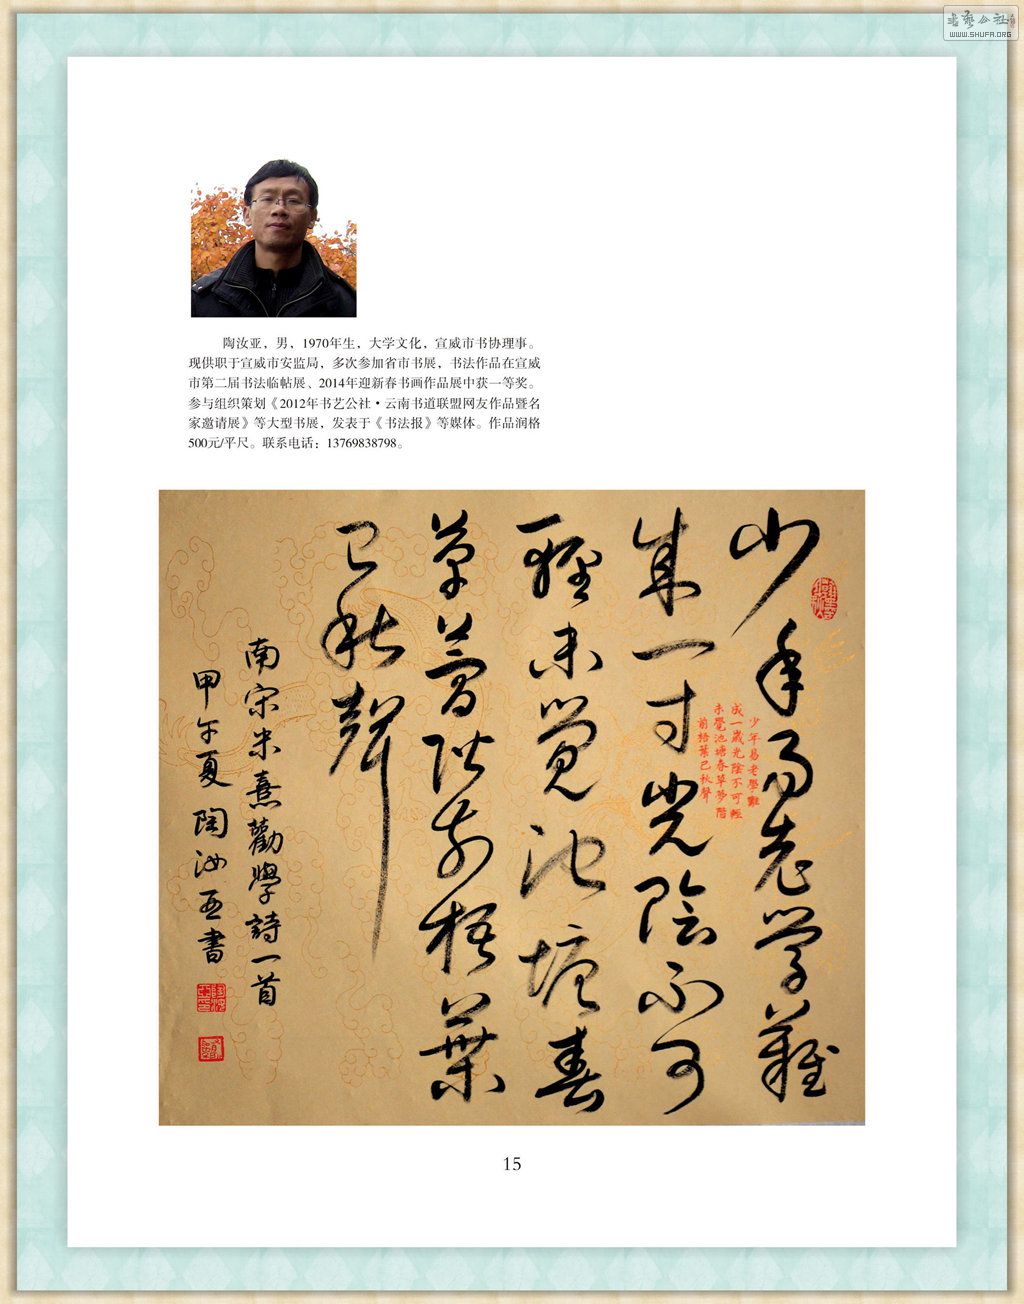 書藝公社
WWW.SHUFA.ORG
陶汝亚，男，1970年生，大学文化，宣威市书协理事。
现供职于宣威市安监局，多次参加省市书展，书法作品在宣威
市第二届书法临帖展、2014年迎新春书画作品展中获一等奖。
参与组织策划《2012年书艺公社·云南书道联盟网友作品暨名
家邀请展》等大型书展，发表于《书法报》等媒体。作品润格
500元/平尺。联系电话：13769838798。
少年易老学難
成一寸光陰不可
輕未觉池塘春
草夢階前梧葉
已秋聲
少年易老學難
成一歲光陰不可輕
未覺池塘春草夢階
前梧葉已秋聲
南宋朱熹勸學詩一首
甲午夏陶汝亚書
15